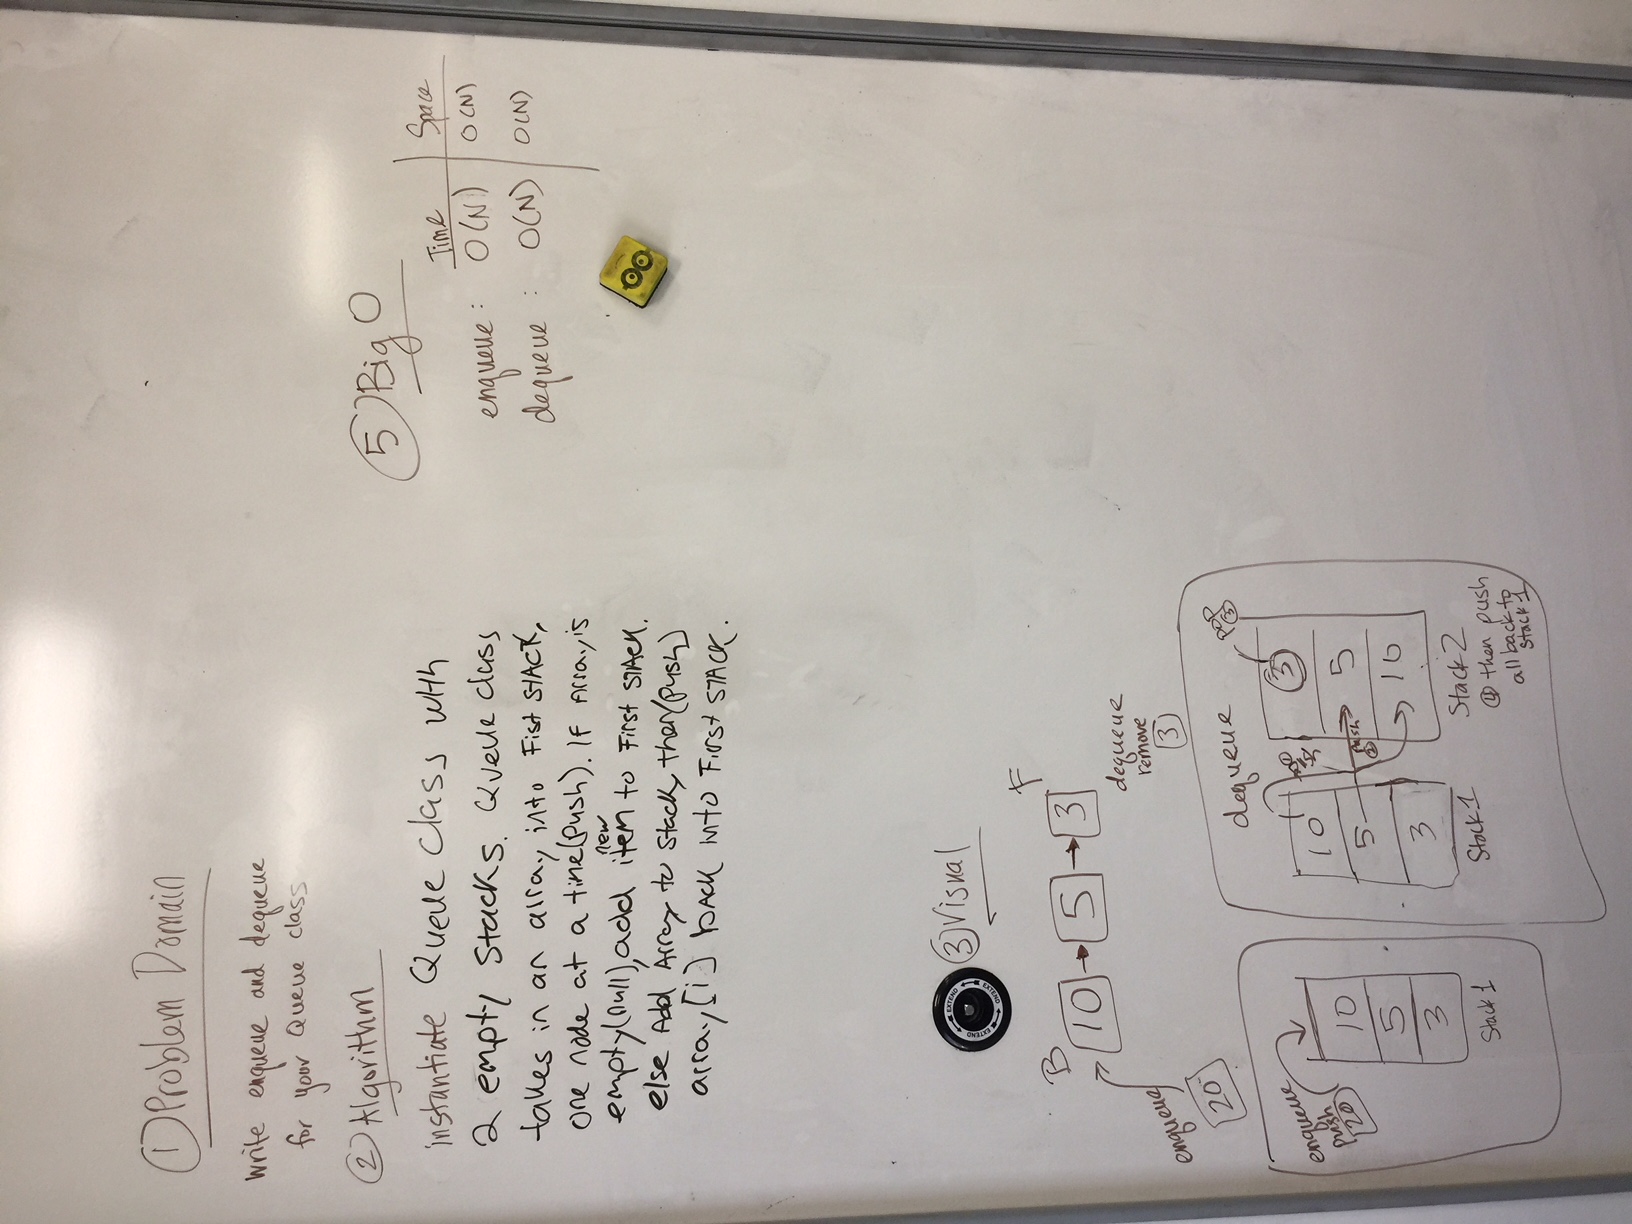 ① Problem Domain
Write enqueue and dequeue
for your Queue class
② Algorithm
instantiate Queue class with
2 empty stacks. Queue class
takes in an array into Fist STACK,
one node at a time(push). If Array is
empty(null), add new item to First STACK.
else Add Array to stack, then(push)
array[i] back into First STACK.
⑤ Big O
Time Space
enqueue: O(N) O(N)
dequeue: O(N) O(N)
EXTEND EXTEND EXTEND
③ Visual
B F
10 → 5 → 3
enqueue
20
dequeue
remove
3
enqueue
push
20
10
5
3
Stack 1
dequeue
10
5
3
Stack 1
push
②
pop
③
3
5
10
Stack 2
④ then push
all back to
stack 1